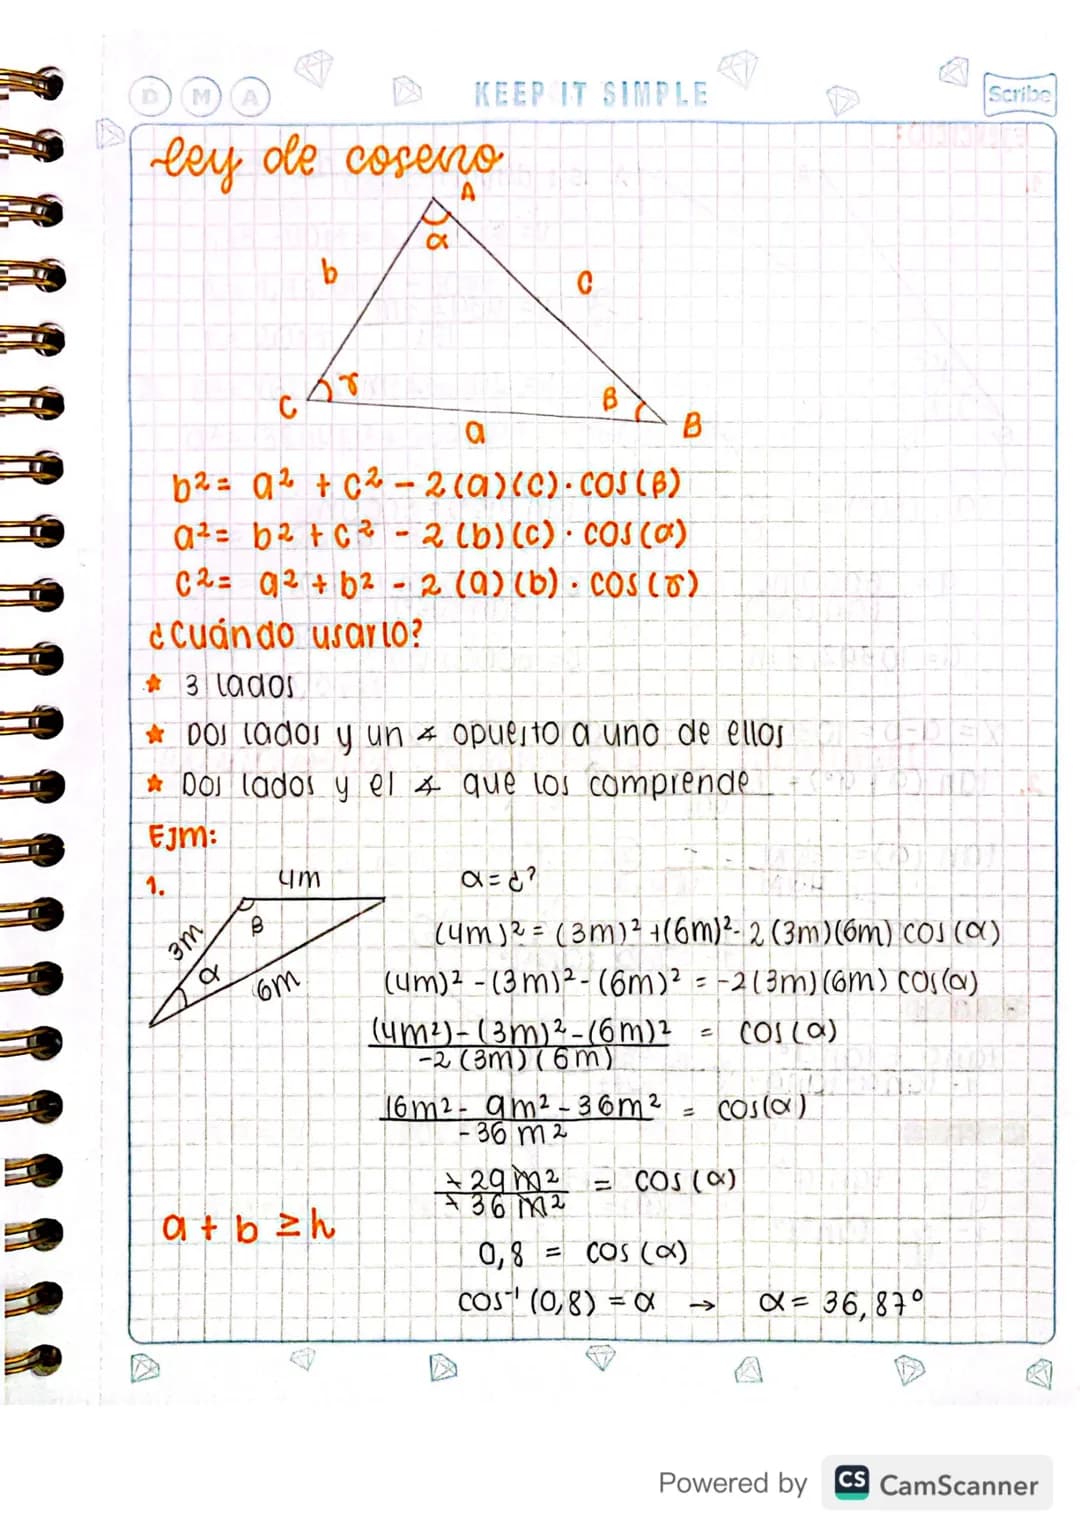 D M A
KEEP IT SIMPLE
Scribe
ley de coseno
A
α
b
c
C
γ
β
B
a
b² = a² + c² - 2(a)(c)·cos(β)
a² = b² + c² - 2(b)(c)·cos(α)
c² = a² + b² - 2(a)(b)·cos(γ)
¿Cuándo usarlo?
★ 3 lados
★ Dos lados y un ∡ opuesto a uno de ellos
★ Dos lados y el ∡ que los comprende
EJm:
1.
4m
3m
β
α
6m
α = ¿?
(4m)² = (3m)² + (6m)² - 2(3m)(6m) cos(α)
(4m)² - (3m)² - (6m)² = -2(3m)(6m) cos(α)
(4m²) - (3m)² - (6m)² = cos(α)
-2(3m)(6m)
16m² - 9m² - 36m² = cos(α)
-36m²
-29m² = cos(α)
-36m²
a + b ≥ h
0,8 = cos(α)
cos⁻¹(0,8) = α → α = 36,87°
Powered by CS CamScanner